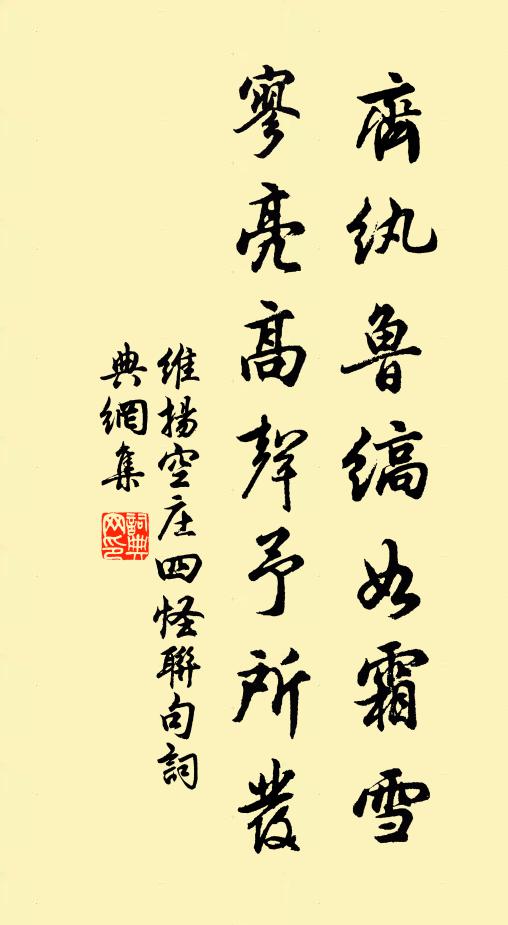 齊紈魯縞如霜雪
寥亮高聲予所發
維揚空庄四怪聯句詞
典網集
詞典網印